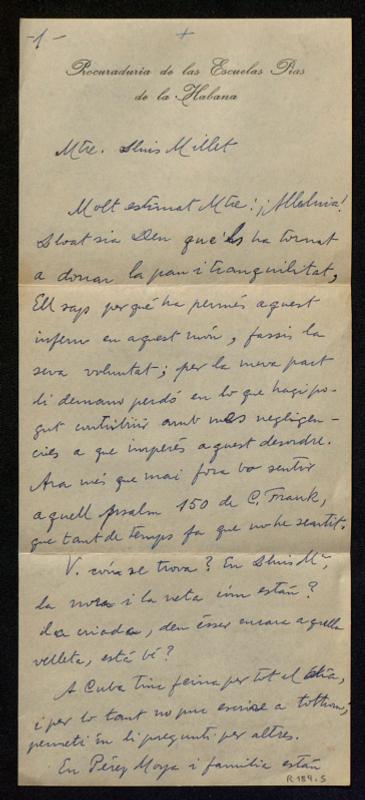 -1-
+
Procuraduria de las Escuelas Pias
de la Habana
Mtre. Lluis Millet
Molt estimat Mtre: ¡Alleluia!
Lloat sia Deu que'ls ha tornat
a donar la pau i tranquilitat,
Ell sap perqué ha permés aquest
infern en aquest món, fassis la
seva voluntat; per la meva part
li demano perdó en lo que hagi po-
gut contribuir amb mes negligen-
cies a que imperés aquest desordre.
Ara més que mai fora bo sentir
aquell psalm 150 de C. Frank,
que tant de temps fa que no he sentit.
V. cóm se trova? En Lluis Mª,
la nora i la neta cóm están?
La criada, deu ésser encara aquella
velleta, está bé?
A Cuba tinc feina per tot el dia,
i per lo tant no puc escriure a tothom;
permeti'm li pregunti per altres.
En Pérez Moya i familia están
R 189.5